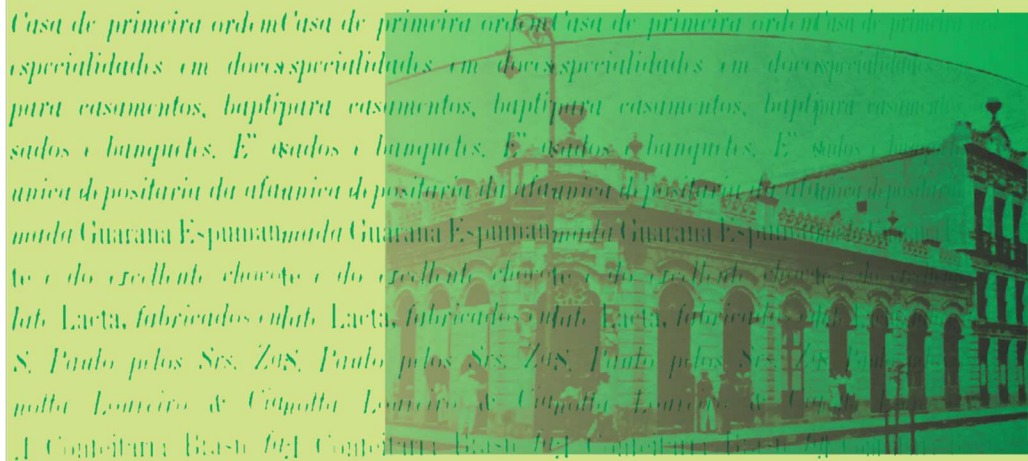 Casa de primeira ordemCasa de primeira ordemCasa de primeira ordemCasa de primeira
especialidades em docesespecialidades em docesespecialidades em docesespecialidades
para casamentos, baptipara casamentos, baptipara casamentos, baptipara casamentos
sados e banquetes. E' sados e banquetes. E' sados e banquetes. E' sados e
unica depositaria da afaunica depositaria da afaunica depositaria da afaunica depositaria
mada Guarana Espumanmada Guarana Espumanmada Guarana Espuman
te e do excellente chocote e do excellente chocote e do excellente chocote e do
late Lacta, fabricados emlate Lacta, fabricados emlate Lacta, fabricados
S. Paulo pelos Srs. ZaS. Paulo pelos Srs. ZaS. Paulo pelos Srs. ZaS. Paulo pelos
notta Loureiro & Cianotta Loureiro & Cianotta
A Confeitaria Brasil A Confeitaria Brasil